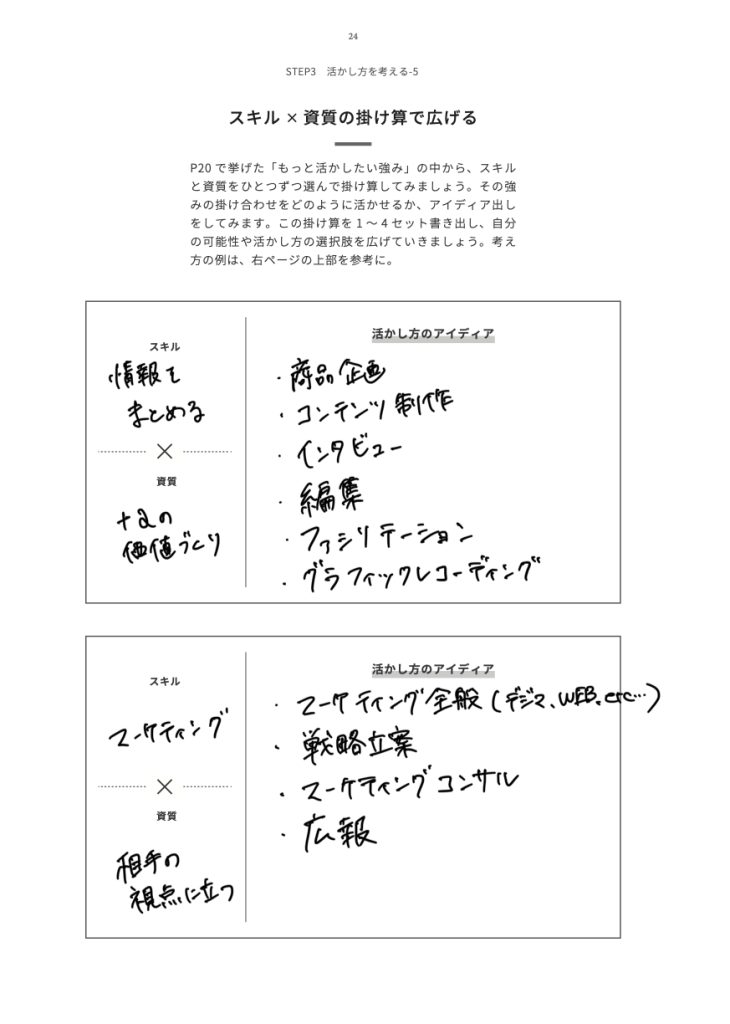 24
STEP3 活かし方を考える-5
スキル × 資質の掛け算で広げる
P20 で挙げた「もっと活かしたい強み」の中から、スキル
と資質をひとつずつ選んで掛け算してみましょう。その強
みの掛け合わせをどのように活かせるか、アイディア出し
をしてみます。この掛け算を 1 〜 4 セット書き出し、自分
の可能性や活かし方の選択肢を広げていきましょう。考え
方の例は、右ページの上部を参考に。
スキル
情報を
まとめる
×
資質
+αの
価値づくり
活かし方のアイディア
・商品企画
・コンテンツ制作
・インタビュー
・編集
・ファシリテーション
・グラフィックレコーディング
スキル
マーケティング
×
資質
相手の
視点に立つ
活かし方のアイディア
・マーケティング全般(デジマ、WEB、etc…)
・戦略立案
・マーケティングコンサル
・広報